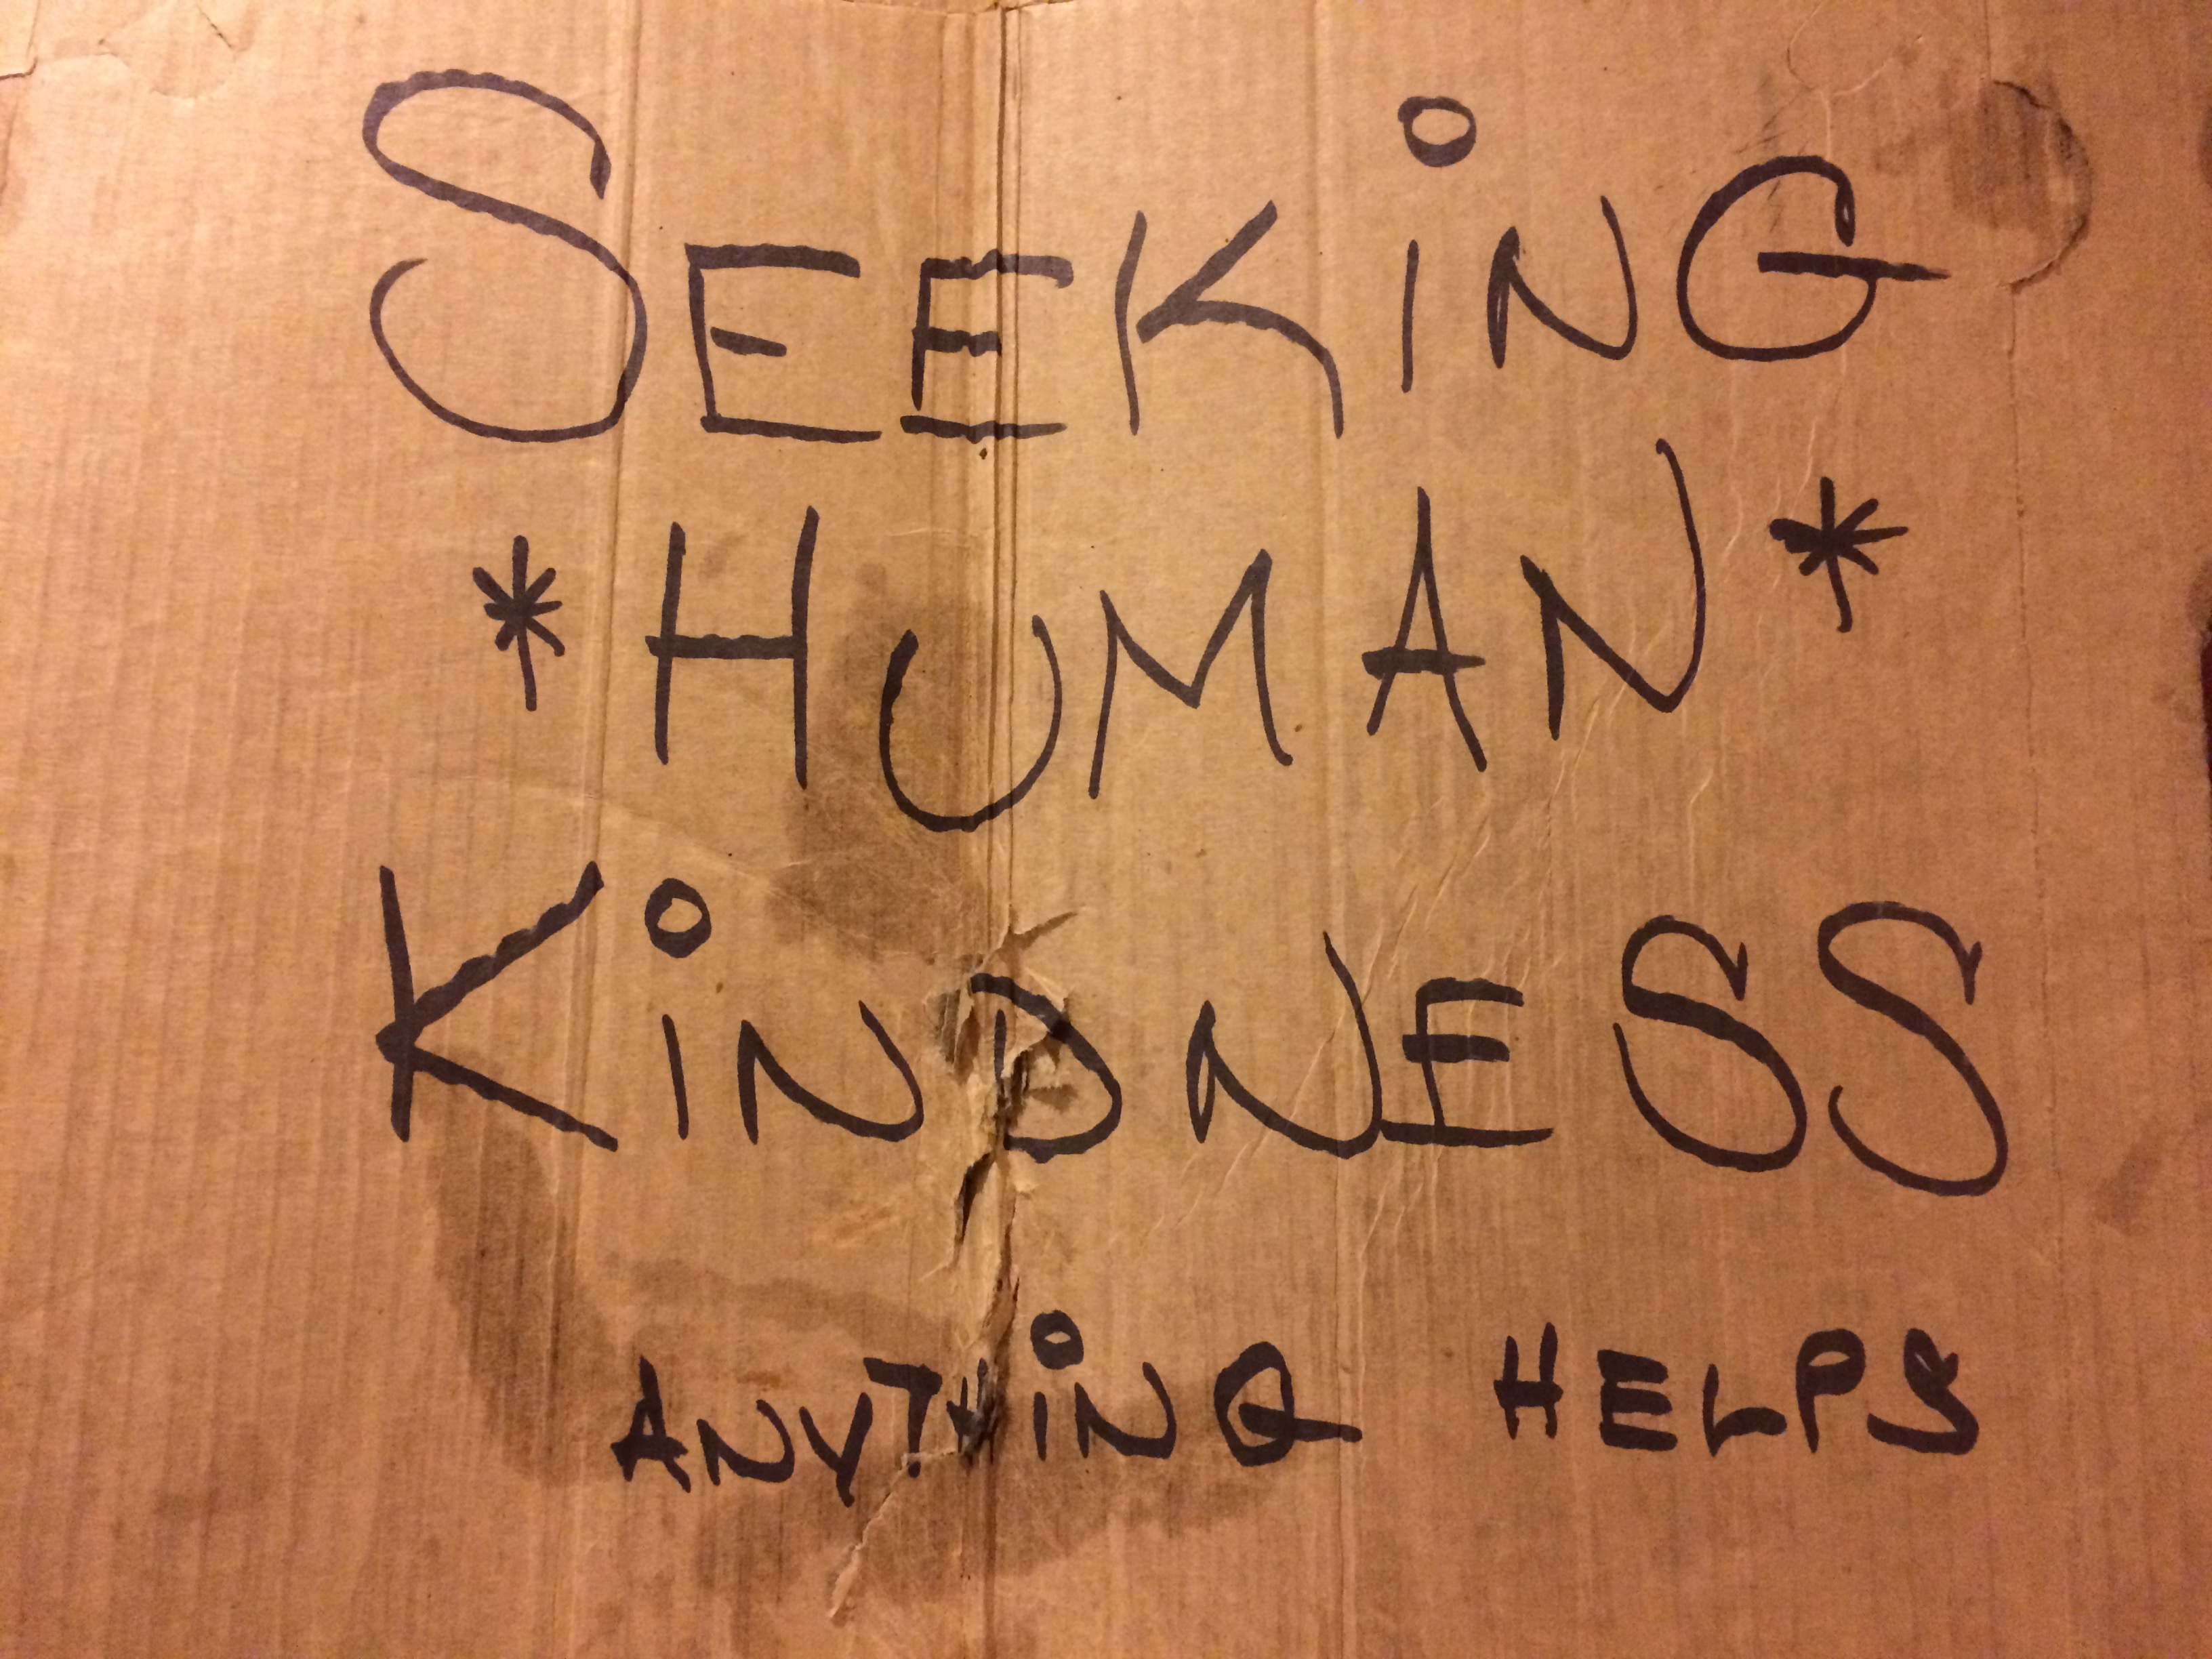 SEEKiNG
*HUMAN*
KiNDNESS
ANYTHiNG HELPS